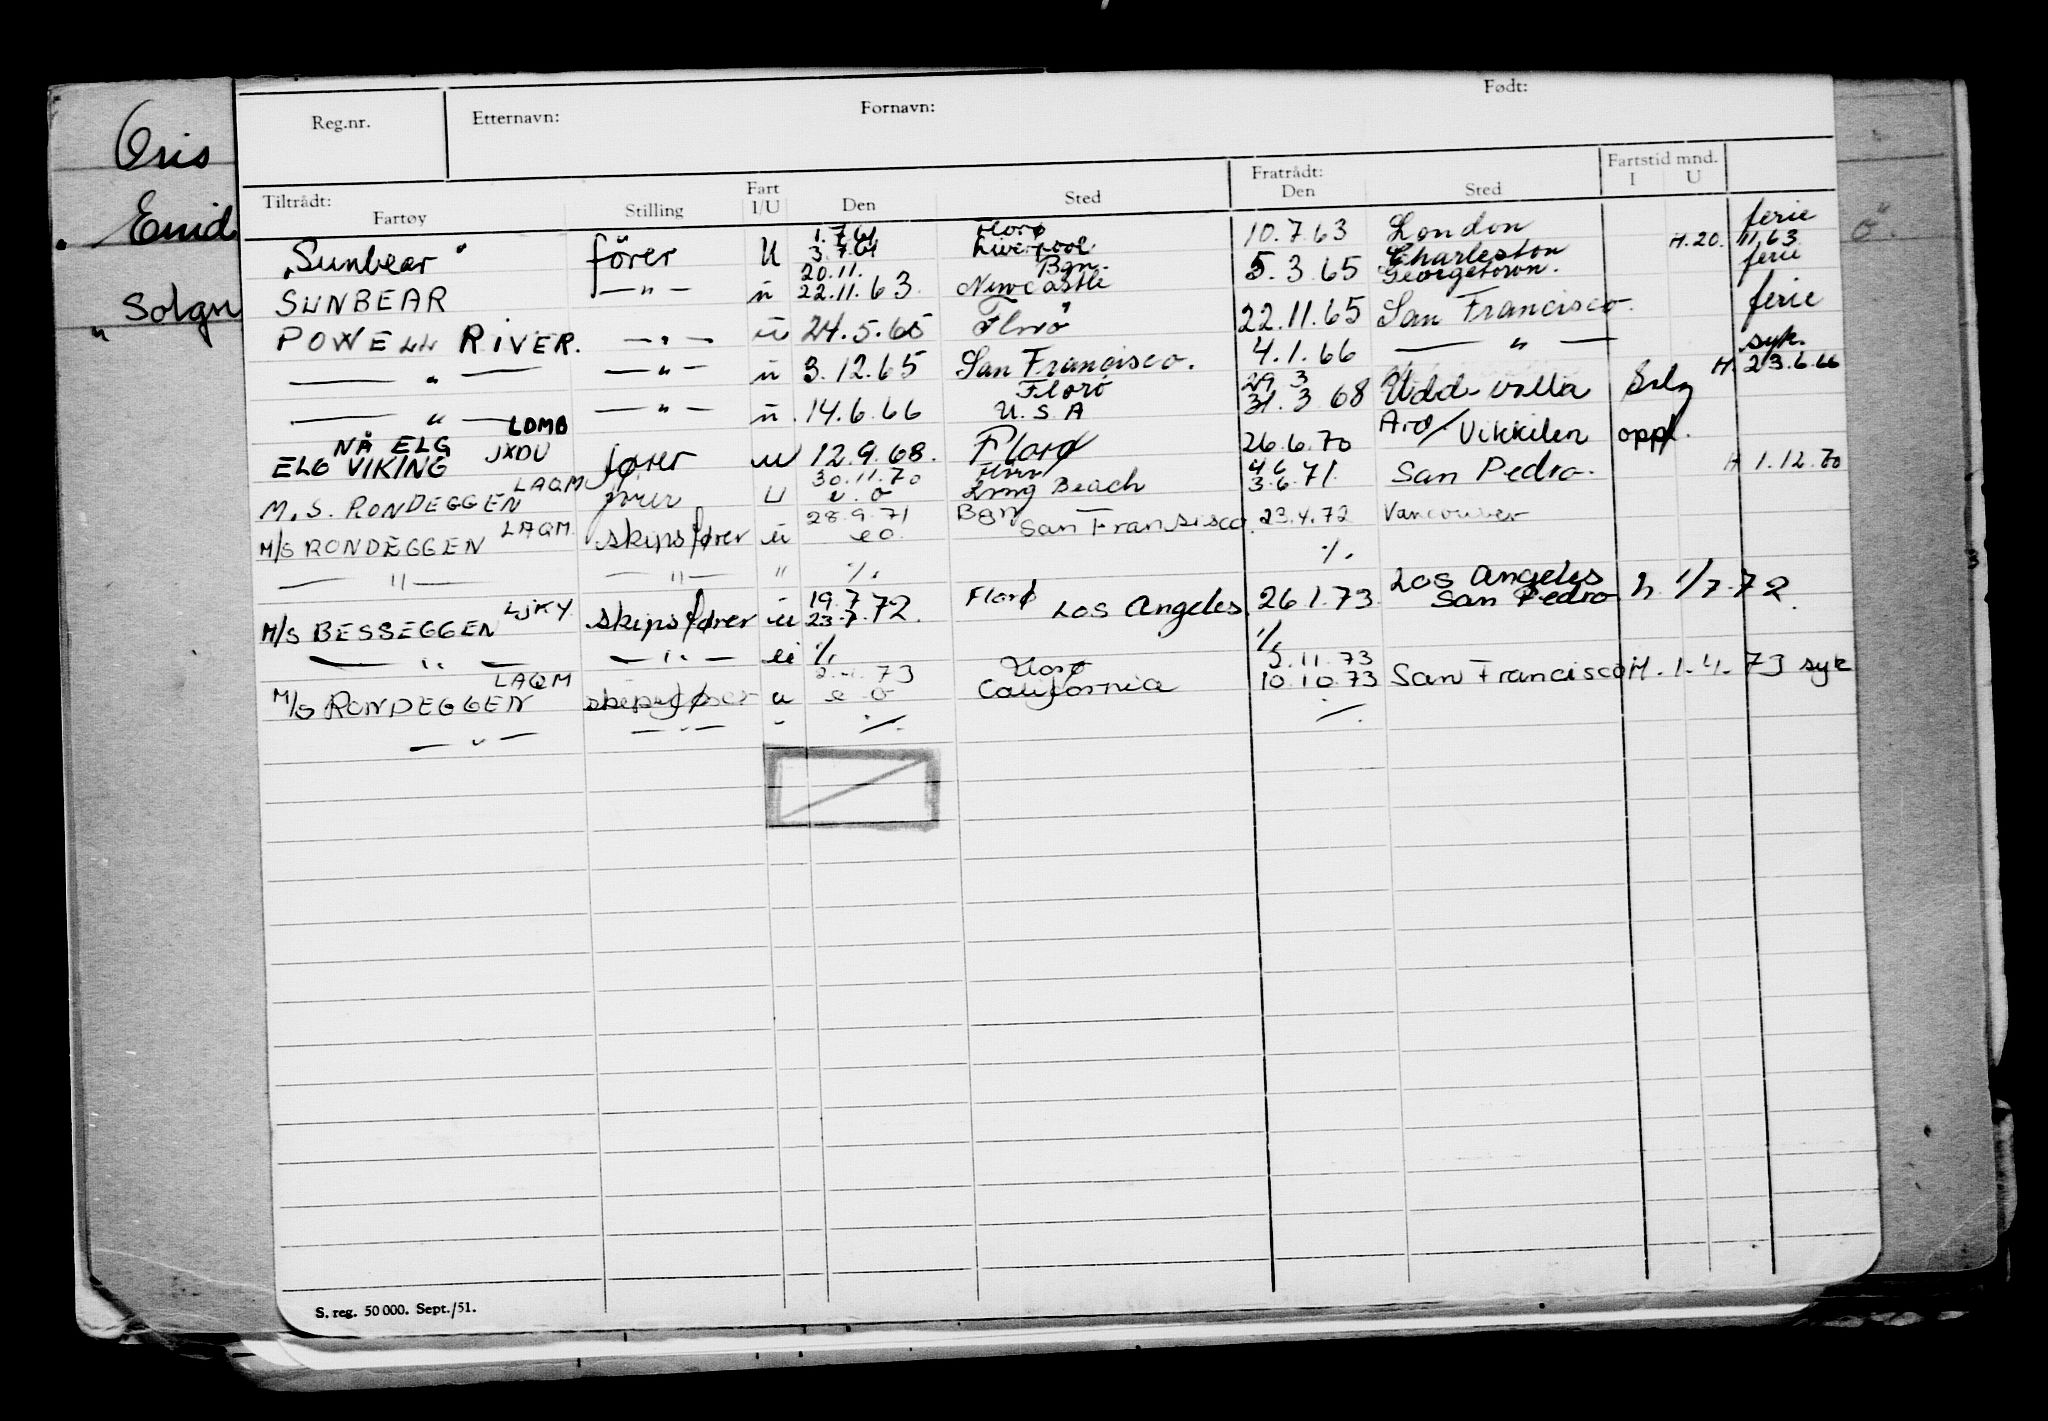 Reg.nr. Etternavn: Fornavn: Født:
Tiltrådt: Fartøy Stilling Fart I/U Den Sted Fratrådt: Den Sted Fartstid mnd. I U
Oris
Enid
" Solgu
„Sunbear" fører U 1.7.61 3.7.61 Florø Liverpool 10.7.63 London ferie
SUNBEAR —"— u 20.11. 22.11.63 Bgn. Newcastle 5.3.65 Charleston Georgetown. H.20.11.63 ferie
POWELL RIVER. —"— u 24.5.65 Florø 22.11.65 San Francisco. ferie
—"— —"— u 3.12.65 San Francisco. 4.1.66 —"— syk.
—"— —"— u 14.6.66 Florø U.S.A 29.3 31.3.68 Uddevalla Salg H. 23.6.66
NÅ ELG LDMB
ELG VIKING JXDU fører u 12.9.68. Florø 26.6.70 Ard/Vikkilen oppl.
M.S. RONDEGGEN LAQM fører U 30.11.70 e.o Florø Long Beach 4.6 3.6.71. San Pedro. H 1.12.70
M/S RONDEGGEN LAQM skipsfører u 28.9.71 eo. Bgn San Fransisco. 23.4.72 Vancouver
—"— —"— " ·/. ·/.
M/S BESSEGGEN LJKY skipsfører u 19.7.72. 23.7 Florø Los Angeles. 26.1.73. Los Angeles San Pedro h. 1/7.72.
—"— —"— u ·/. ·/.
M/S RONDEGGEN LAQM skipsfører u 73 e o Florø California 3.11.73 10.10.73 San Francisco H. 1.4.73 syk
—"— —"— - ·/. ·/.
S. reg. 50 000. Sept./51.